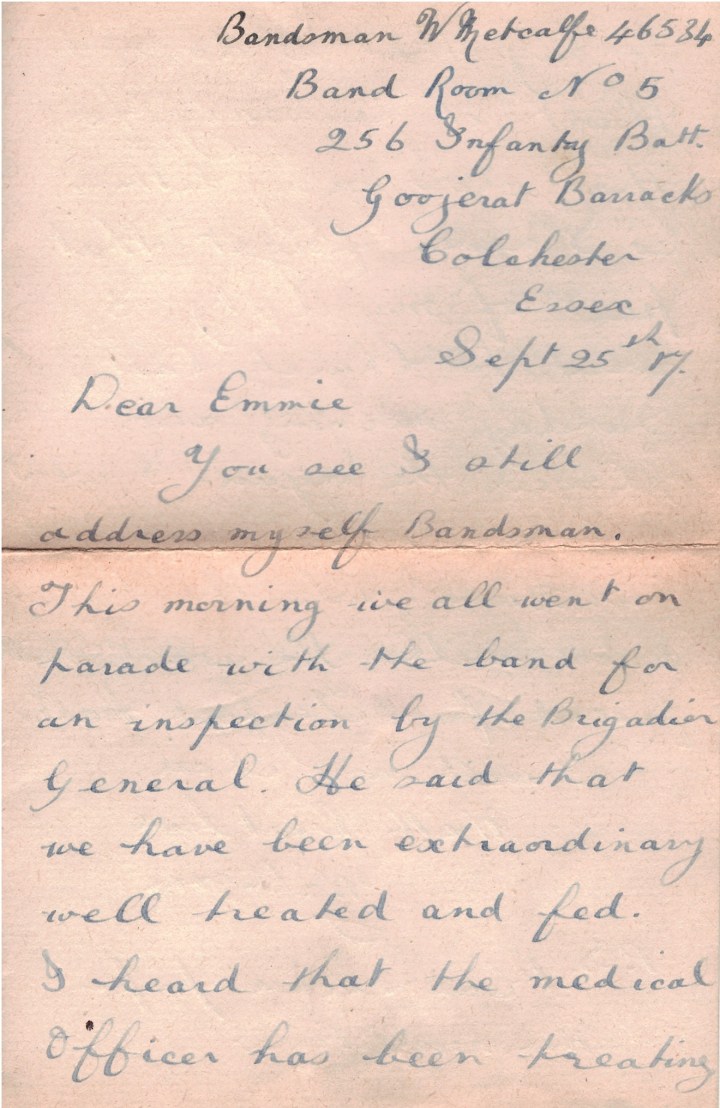 Bandsman W Metcalfe 46534
Band Room No 5
256 Infantry Batt.
Goojerat Barracks
Colchester
Essex
Sept 25th 17.
Dear Emmie
You see I still
address myself Bandsman.
This morning we all went on
parade with the band for
an inspection by the Brigadier
General. He said that
we have been extraordinary
well treated and fed.
I heard that the medical
Officer has been treating